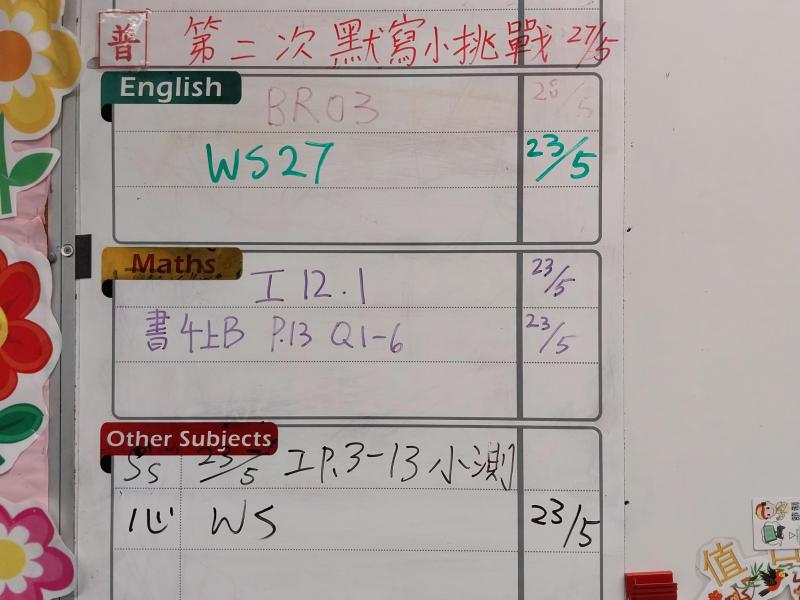 普 第二次默寫小挑戰 27/5
English
BR03 28/5
WS27 23/5
Maths
工 12.1 23/5
書4上B P.13 Q1-6 23/5
Other Subjects
SS 23/5 工P.3-13 小測
心 WS 23/5
值